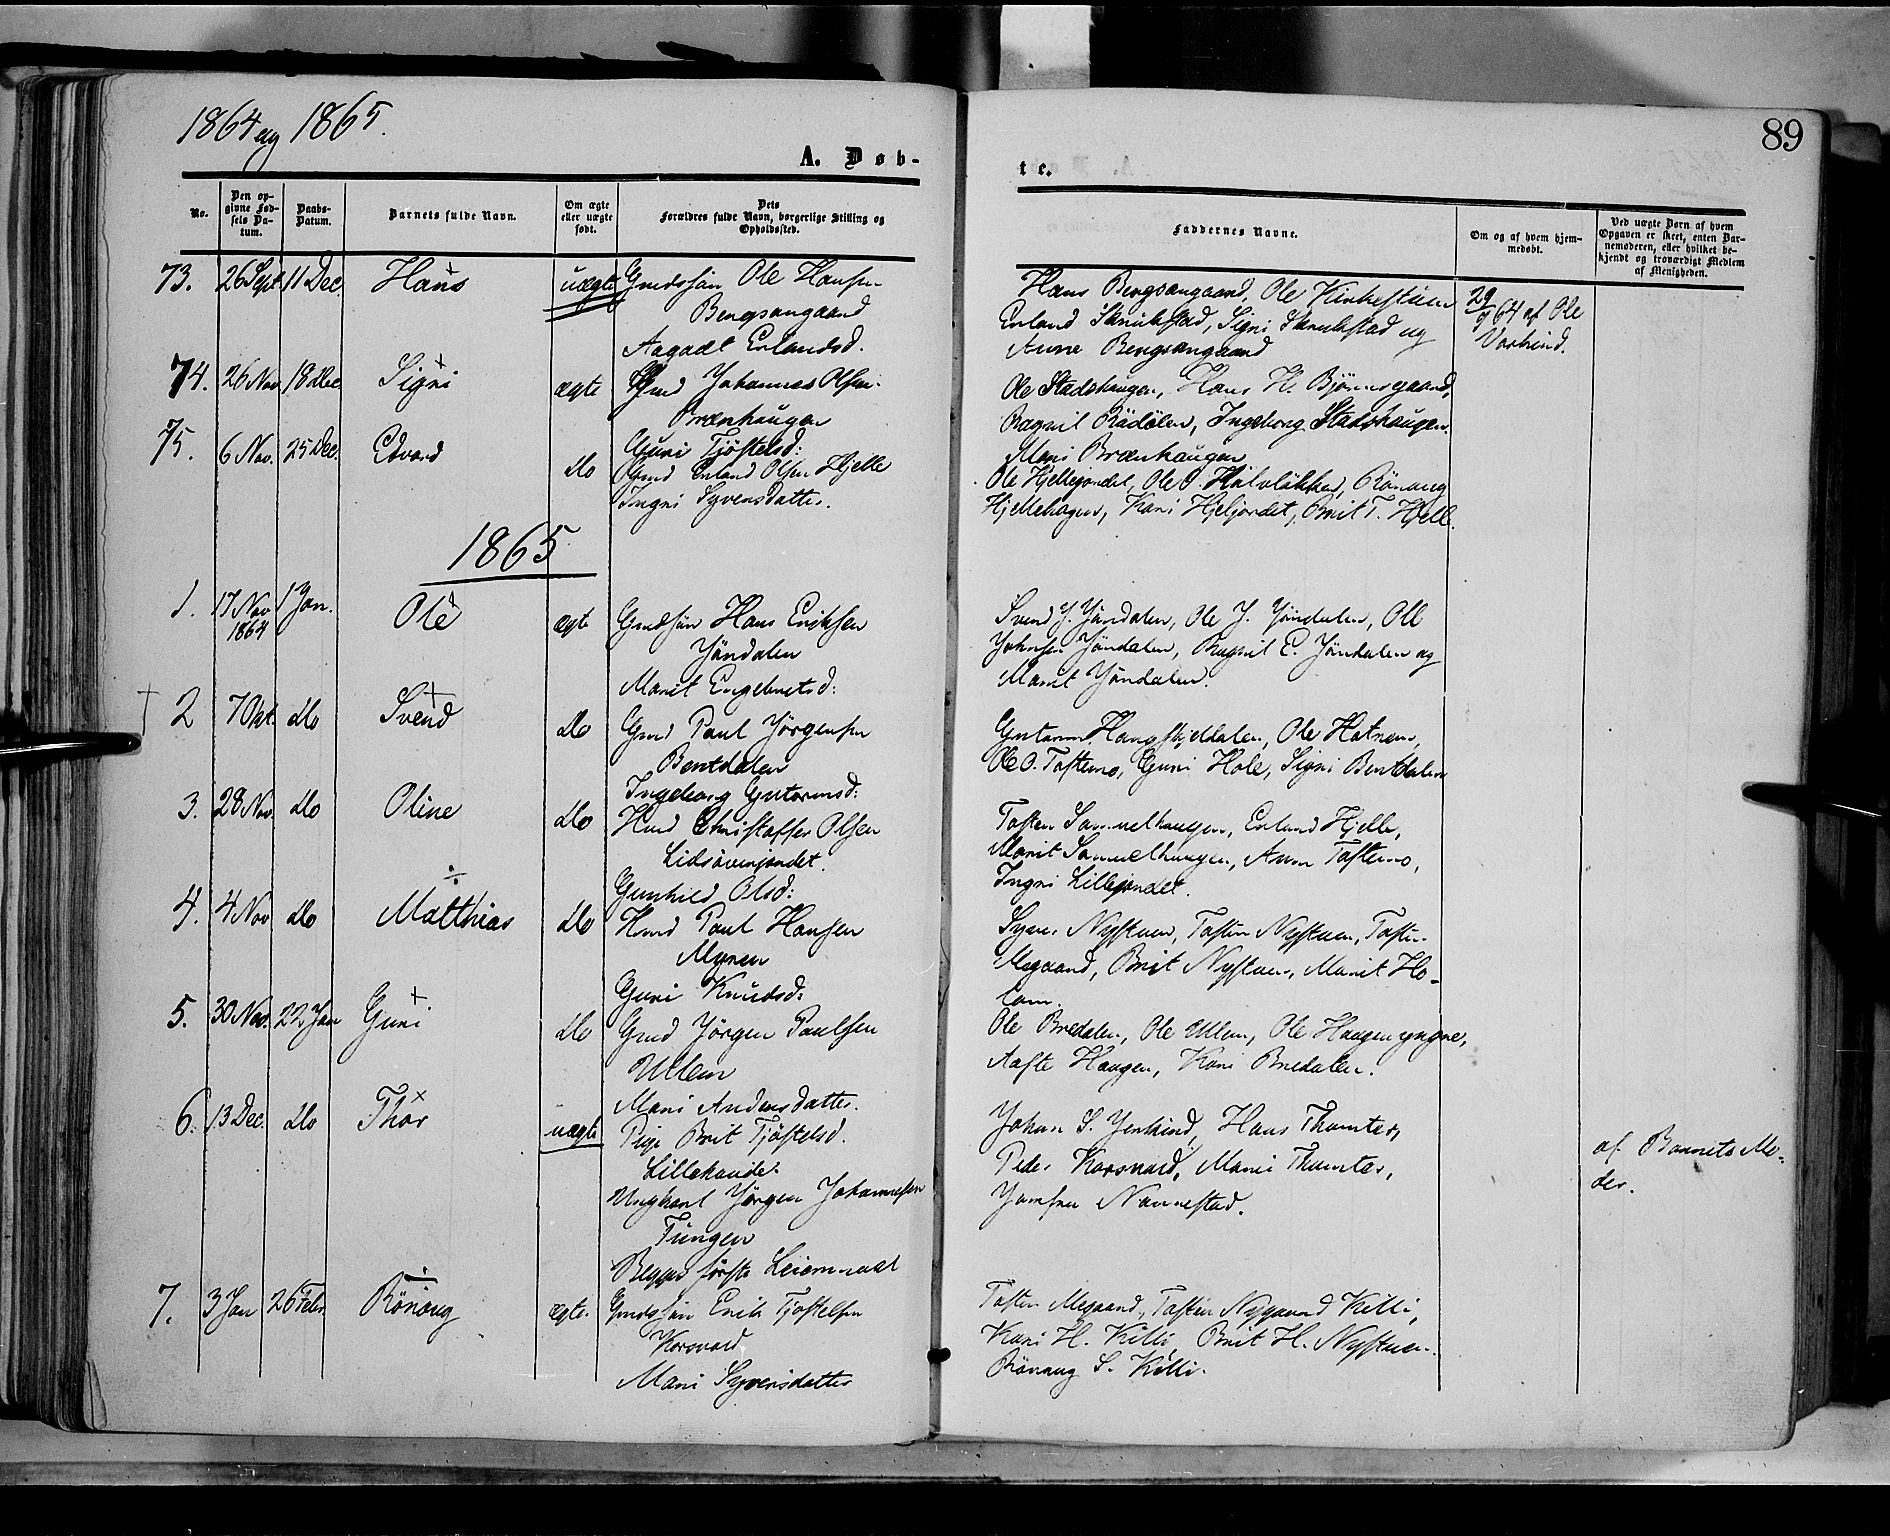 1864 og 1865.
A. Døb-
te.
89
No.
Den op-
givne Fød-
sels Da-
tum.
Daabs-
Datum.
Barnets fulde Navn.
Om ægte
eller uægte
født.
Dets
Forældres fulde Navn, borgerlige Stilling og
Opholdssted.
Faddernes Navne.
Om og af hvem hjem-
medøbt.
Ved uægte Børn af hvem
Opgaven er skeet, enten Bar-
nemoderen, eller hvilket be-
kjendt og troværdigt Medlem
af Menigheden.
73. 26 Sept 11 Dec. Hans uægte Grmdsøn Ole Hansen
Bengsangaard
Aagadt Erlandsd.
Hans Bengsangaard, Ole Kirkestuen
Erland Skrukstad, Signi Skrukstad og
Anne Bengsangaard
29/9 64 af Ole
Vorkind.
74. 26 Nov 18 Dec. Signi ægte Gmd Johannes Olsen
Brænhaugen
Guri Tjøstelsd:
Ole Stadshaugen, Hans H. Bjørnsgaard,
Ragnil Rådølen, Ingeborg Stadshaugen.
Mari Brænhaugen
75. 6 Nov. 25 Dec. Edvard do Gmd Erland Olsen Hjelle
Ingri Syversdatter.
Ole Hjellejordet, Ole O. Halvløkken, Rønaug
Hjellehagen, Kari Hjeljordet, Brit T. Hjelle.
1865
1. 17 Nov 1 Jan. Ole ægte Grmdsøn Hans Eriksen
1864
Jøndalen
Marit Engebretsd:
Svend J. Jøndalen, Ole J. Jøndalen, Ole
Johnsen Jøndalen, Ragnil E. Jøndalen og
Marit Jøndalen.
2 7 Okt. do Svend do Gmd Paul Jørgensen
Bentdalen
Ingeborg Guttormsd:
Guttorm Haugskjeldalen, Ole Hatrem,
Ole O. Toftemo, Guri Hole, Signi Bentdalen
3. 28 Nov. do Oline do Hmd Christoffer Olsen
Lidsøverjordet.
Gunhild Olsd:
Tosten Samuelhaugen, Erland Hjelle,
Marit Samuelhaugen, Anne Toftemo,
Ingri Lillejordet.
4. 4 Nov do Matthias do Hmd Paul Hansen
Myren
Guri Knudsd:
Syver Nystuen, Tosten Nystuen, Tosten
Megaard, Brit Nystuen, Marit Ho-
lam.
5. 30 Nov. 22 Jan Guri do Gmd Jørgen Paulsen
Ullem
Mari Andersdatter.
Ole Bredalen, Ole Ullem, Ole Haugen yngre,
Aaste Haugen, Kari Bredalen.
6. 13 Dec. do Thor uægte Pige Brit Tjøstelsd.
Lillehaide.
Ungkarl Jørgen Johannesen
Tungen
Begges første Leiermaal
Johan S. Jenkind, Hans Thomter,
Peder Korsvard, Mari Thomter,
Jomfru Nannestad.
af Barnets Mo-
der.
7. 3 Jan 26 Febr. Rønaug ægte. Grmdssøn Erik Tjøstelsen
Korsvard
Mari Syversdatter
Tosten Megaard, Tosten Nygaard Killi,
Kari H. Killi, Brit H. Nystuen.
Rønaug S. Killi.